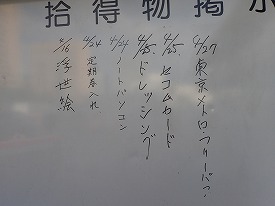 拾得物掲示
4/27 東京メトロフリーパス
4/25 セコムカード
4/25 ドレッシング
4/24 ノートパソコン
4/24 定期券入れ
4/16 浮世絵